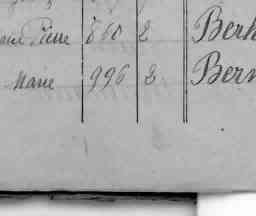 Pierre 860 2 Berh
Marie 996 3 Bern